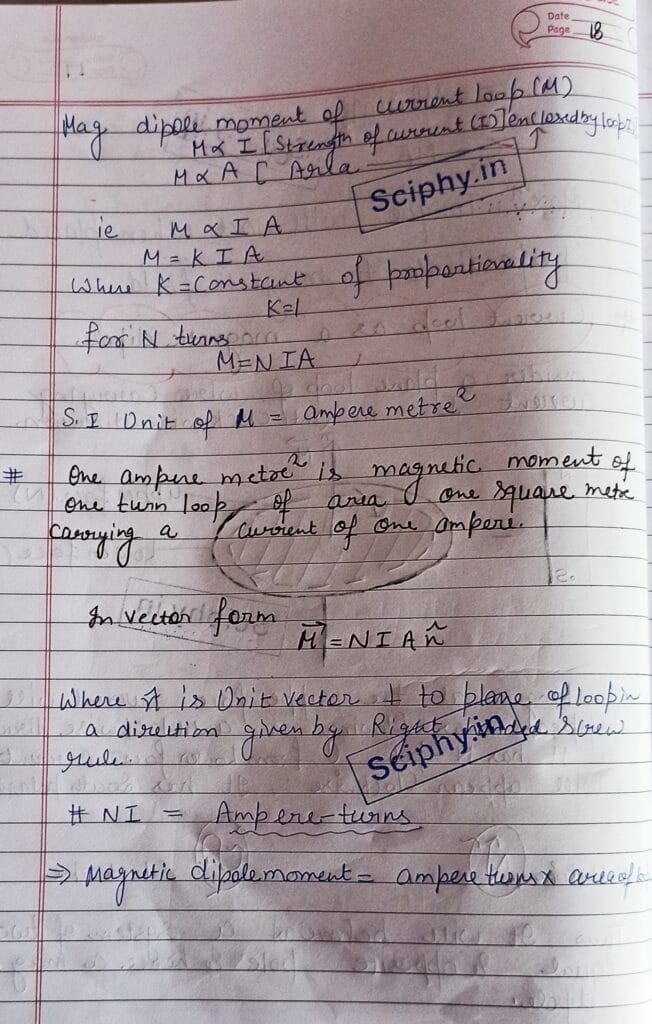 Date
Page 18
Mag dipole moment of current loop (M)
M ∝ I [Strength of current (I)] enclosed by loop]
M ∝ A [ Area
Sciphy.in
ie M ∝ I A
M = K I A
Where K = Constant of proportionality
K=1
for N turns
M=NIA
S.I Unit of M = ampere metre²
# One ampere metre² is magnetic moment of
one turn loop of area one square metre
Carrying a current of one ampere.
In vector form
M⃗ = N I A n̂
Where n̂ is Unit vector ⊥ to plane of loop in
a direction given by Right handed Screw
rule.
Sciphy.in
# NI = Ampere-turns
⇒ Magnetic dipole moment = ampere turns x area of